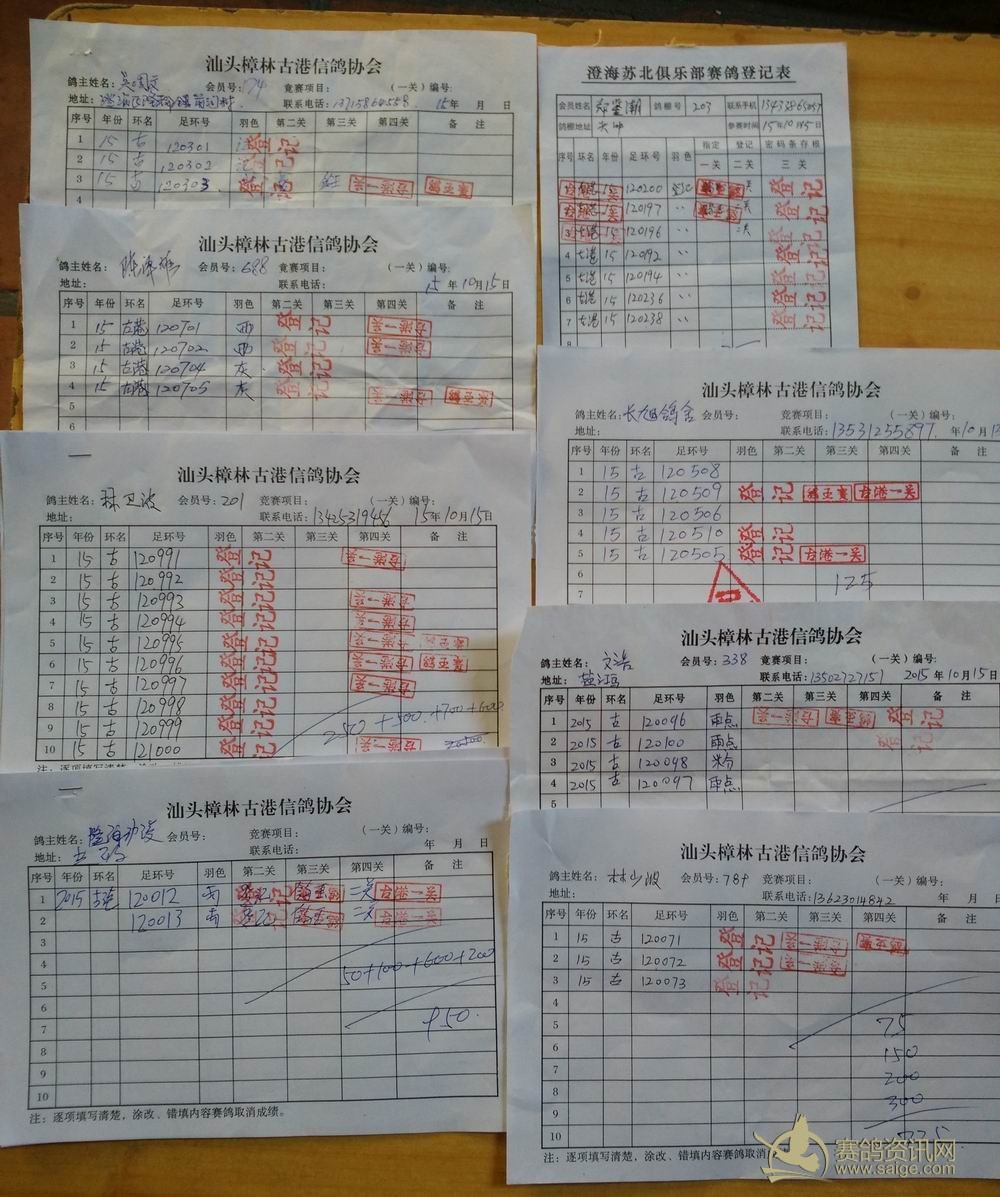 汕头樟林古港信鸽协会
鸽主姓名: 会员号:74 竞赛项目: (一关)编号:
地址: 联系电话:13715860558 15年 月 日
序号 年份 环名 足环号 羽色 第二关 第三关 第四关 备 注
1 15 古 120301 登记
2 15 古 120302 登记
3 15 古 120303 登记 古港一关
4
汕头樟林古港信鸽协会
鸽主姓名: 会员号:688 竞赛项目: (一关)编号:
地址: 联系电话: 15年10月15日
序号 年份 环名 足环号 羽色 第二关 第三关 第四关 备 注
1 15 古港 120701 雨 登记 古港一关
2 15 古港 120702 雨 登记 古港一关
3 15 古港 120704 灰 登记
4 15 古港 120705 灰 登记 古港一关
5
6
汕头樟林古港信鸽协会
鸽主姓名:林卫波 会员号:201 竞赛项目: (一关)编号:
地址: 联系电话:13425319456 15年10月15日
序号 年份 环名 足环号 羽色 第二关 第三关 第四关 备 注
1 15 古 120991 登记 古港一关
2 15 古 120992 登记
3 15 古 120993 登记 古港一关
4 15 古 120994 登记 古港一关
5 15 古 120995 登记 古港一关
6 15 古 120996 登记 古港一关
7 15 古 120997 登记 古港一关
8 15 古 120998 登记
9 15 古 120999 登记 250+500+700+600
10 15 古 121000 登记 古港一关
汕头樟林古港信鸽协会
鸽主姓名: 会员号: 竞赛项目: (一关)编号:
地址: 联系电话: 年 月 日
序号 年份 环名 足环号 羽色 第二关 第三关 第四关 备 注
1 2015 古港 120012 雨 登记 二关 古港一关
2 120013 雨 登记 二关 古港一关
3
4 50+100+600+200
5
6
7 950.
8
9
10
注:逐项填写清楚,涂改、错填内容赛鸽取消成绩。
澄海苏北俱乐部赛鸽登记表
会员姓名 郑鉴潮 鸽棚号 203 联系手机
鸽棚地址 参赛时间 15年10月15日
序号 环名 年份 足环号 羽色 指定 登记 密码条存根
一关 二关 三关
古港 15 120200 二关 登记
古港 15 120197 〃 二关 登记
3 古港 15 120196 〃 二关 登记
4 古港 15 120192 〃 登记
5 古港 15 120194 〃 登记
6 古港 15 120236 〃 登记
7 古港 15 120238 〃 登记
8
汕头樟林古港信鸽协会
鸽主姓名:长旭鸽舍 会员号: 竞赛项目: (一关)编号:
地址: 联系电话:13531255897. 年10月
序号 年份 环名 足环号 羽色 第二关 第三关 第四关 备 注
1 15 古 120508
2 15 古 120509 登记 古港一关
3 15 古 120506
4 15 古 120510 登记
5 15 古 120505 登记 古港一关
6 125
7
汕头樟林古港信鸽协会
鸽主姓名:文浩 会员号:338 竞赛项目: (一关)编号:
地址:盐鸿 联系电话:13502727151 2015年10月15日
序号 年份 环名 足环号 羽色 第二关 第三关 第四关 备 注
1 2015 古 120096 雨点 古港一关 登记
2 2015 古 120100 雨点 登记
3 2015 古 120098 米分
4 2015 古 120097 雨点
5
汕头樟林古港信鸽协会
鸽主姓名:林少波 会员号:789 竞赛项目: (一关)编号:
地址: 联系电话:13623014842 年 月
序号 年份 环名 足环号 羽色 第二关 第三关 第四关 备 注
1 15 古 120071 登记 古港一关
2 15 古 120072 登记 古港一关
3 15 古 120073 登记
4
5 75
6 150
7 200
8 300
9
10 725
注:逐项填写清楚,涂改、错填内容赛鸽取消
赛鸽资讯网
www.saige.com